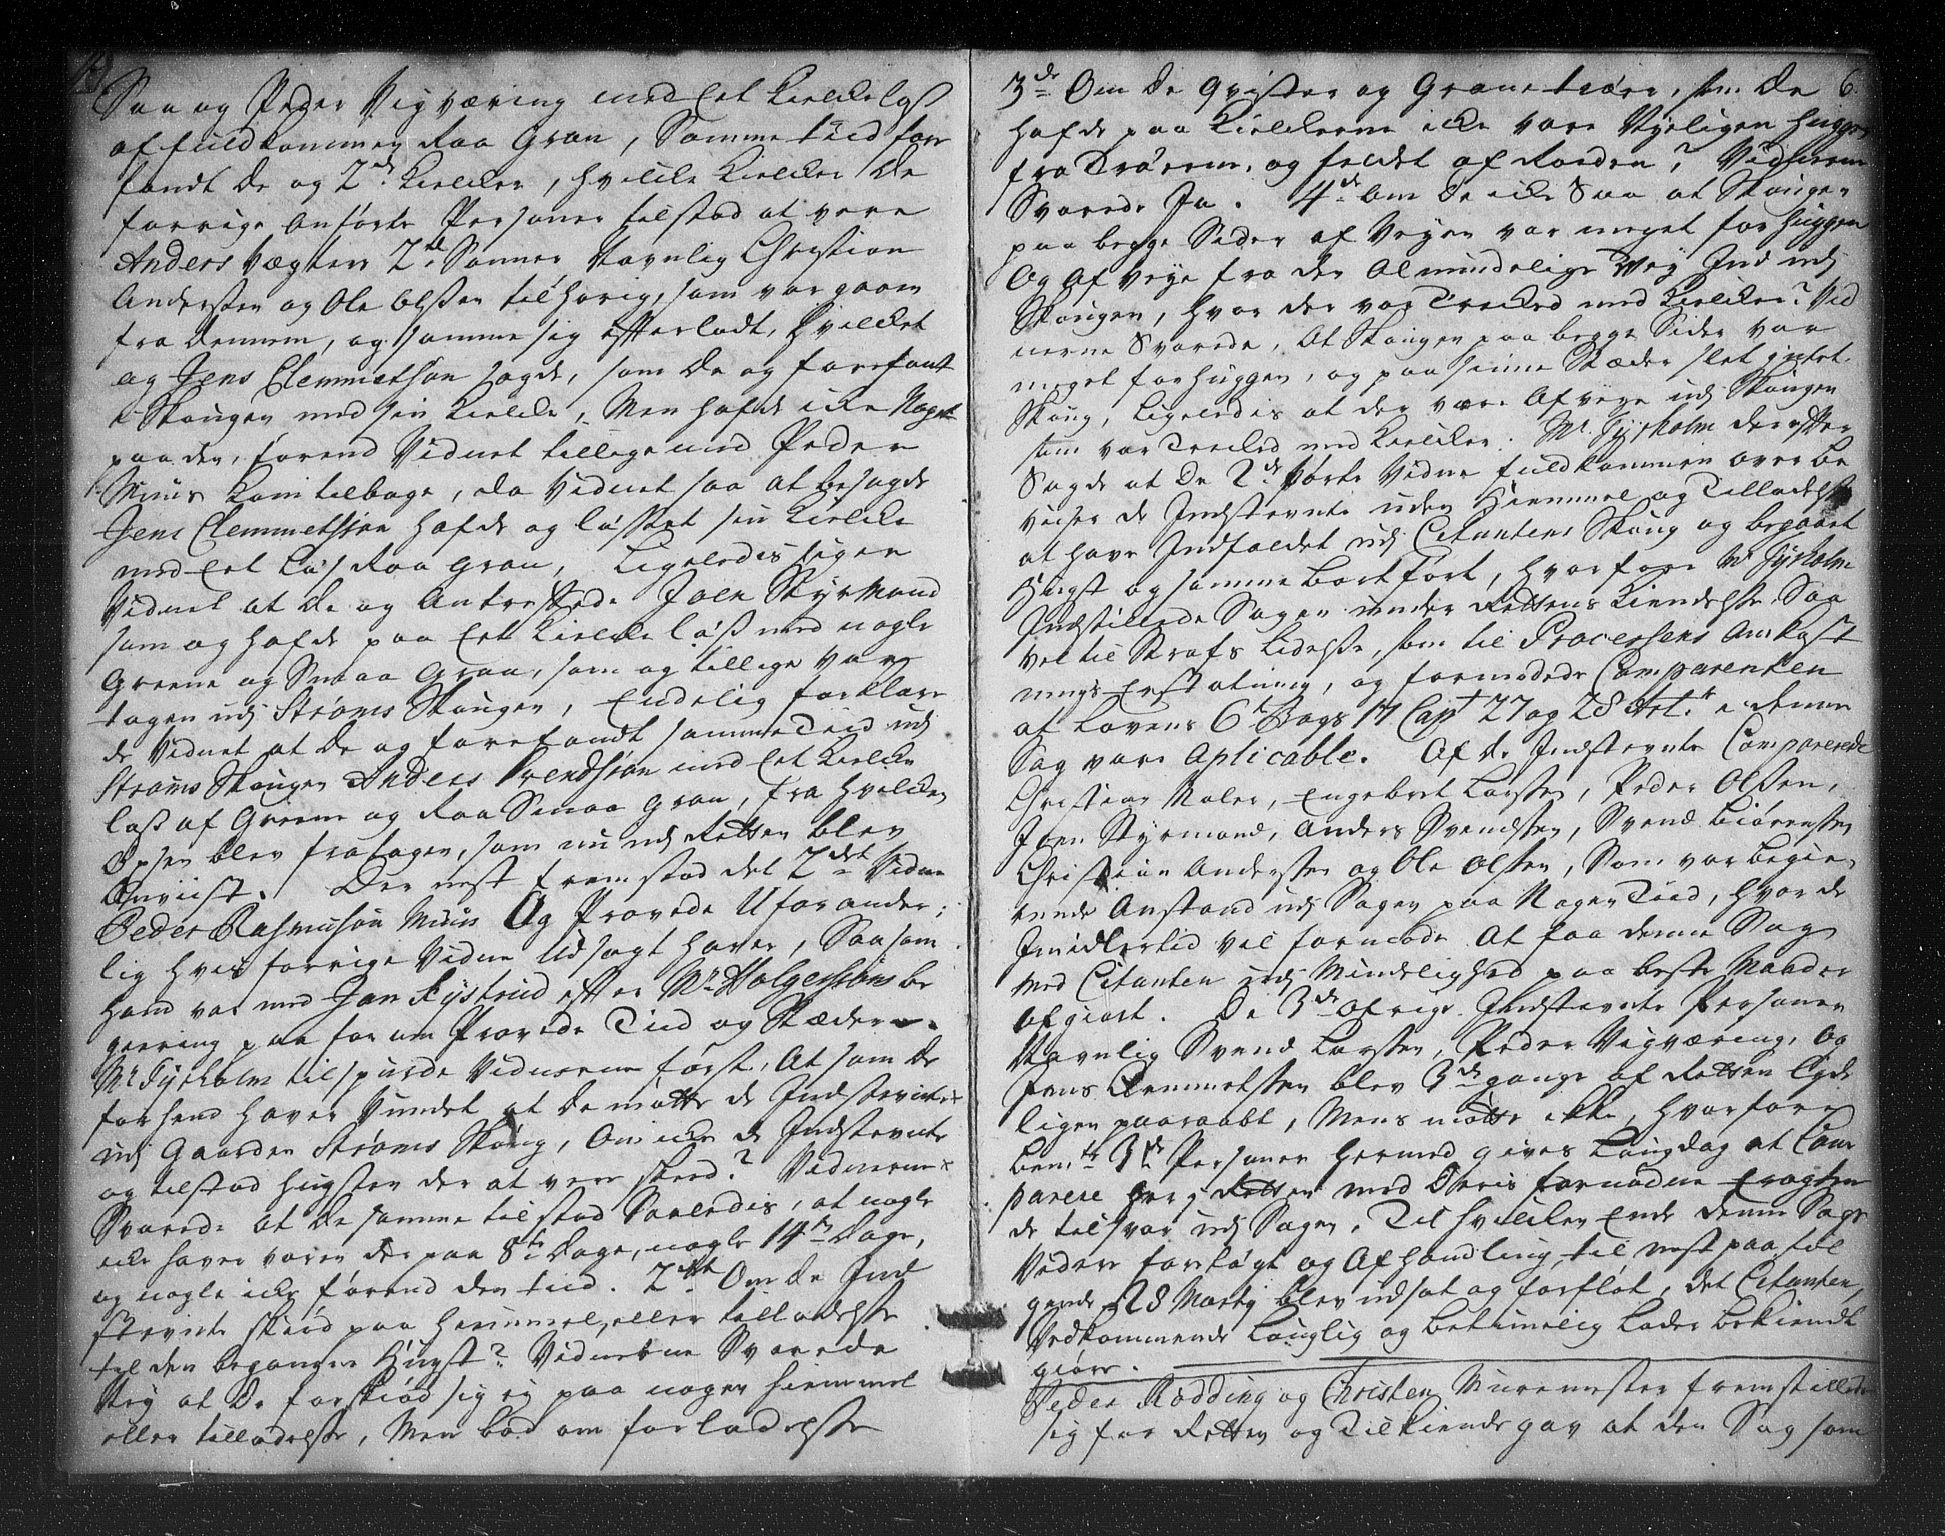 Saa og Peder Vigværing med eet Kielckelass
af fuldkommen Raa Gran, Samme tiid fore
fandt de og 2de Kielcker, hvilke Kielcker de
forrige anførte Personer tilstod at vere
Anders Vægters 2de Sønner Navnlig Christian
Andersen og Ole Olssen tilhørig, som var gaaen
fra dennem, og samme sig efterladt, hvilcket
og Jens Clemmetsøn sagde, som de og forefant
i Skougen med sin Kielcke, Men hafde icke Noget
paa den, førend Vidnet tillige med Peder
Muus kom tilbage, da Vidnet saa at besagde
Jens Clemmetsøn hafde og lasset sin Kielcke
med eet Las Raa Gran, Ligeledis siger
Vidnet at de og Antreffede Joen Styrmand
som og hafde paa eet Kielcke lass med nogle
Greene og Smaa Gran, som og tillige var
tagen udj Strøms Skougen, Endelig forklare
de Vidnet at de og forefandt samme Tiid udj
Strøms Skougen Anders Svendsøn med eet Kielcke
lass af Greene og Raa Smaa Gran, fra hvilcken
Øxsen blev fratagen, som nu udj Retten blev
Anviist. Der nest fremstod det 2det Vidne
Peder Rasmusøn Muus Og Provede Uforander,
lig hves forrige Vidne Udsagt haver, Saasom
hand var med Jan Rystrud efter Mr Holgersøns be
gierring paa forom Provede Tiid og Stæder.
Mr Tyrholm tilspurde Vidnerne først, At som de
forhend haver Vundet at de møtte de Indstevnte
udj Gaarden Strøms Skoug, Om icke de Indstevnte
og tilstod hugsten der at vere skeed? Vidnerne
Svarede at de samme tilstod Saaledis, at nogle
icke haver voren der paa 8te Dage, nogle 14ten Dage,
og nogle icke førend den tiid. 2det Om de Ind
stevnte skiød paa hiemmel, eller tilladelsse
til den begangne Hugst? Vidnerne Svarede
Ney at de forskiød sig ej paa nogen hiemmel
eller tilladelsse, Men bad om forladelsse
6.
3de Om de Qvister og Grane træer, som de
hafde paa Kielckerne icke vare Nyeligen huggen
fra Træerne, og feldet af Roeden? Vidnerne
Svarede Ja. 4de Om de icke Saa at Skougen
paa begge Sider af Veyen var meget forhuggen
Og Afveye fra den Almindelige Vey Ind udj
Skougen, hvor der var Trecked med Kielcker? Vid
nerne Svarede, At Skougen paa begge Sider var
meget forhuggen, og paa sinne Stæder slet intet
Skoug, Ligeledis at der vare Afveye udj Skougen
som var Trecked med Kielcker. Mr Tyrholm der efter
Sagde at de 2de førte Vidne fuldkommen over be
viser de Indstevnte uden Hiemmel og Tilladelsse
at have Indfaldet udj Citantens Skoug og begaaet
Hugst og samme bortført, hvorfore Mr Tyrholm
Indstillede Sagen under Rettens Kiendelsse, Saa
vel til Strafs Lidelsse, som til Processens Omkost
nings Erstatning, og formodede Comparenten
at Lovens 6te Bogs 17 Capt 27 og 28 Art. i denne
Sag vare Aplicable. Af de Indstevnte Comparerede
Christian Maler, Engebret Larssen, Peder Olssen,
Joen Styrmand, Anders Svendssen, Svend Biørenssen
Christian Anderssen og Ole Olssen, Som var begie
rende Anstand udj Sagen paa Nogen Tiid, hvor de
Imidlertid vil formode At faa denne Sag
med Citanten udj Mindelighed paa beste Maader
afgiort. De 3de øfrige Indstevnte Personer
Navnlig Svend Larssen, Peder Vigværing, Og
Jens Clemmetssen blev 3de gange af Retten Lyde
ligen paaraabt, Mens møtte ikke, hvorfore
bem.te 3de Personer hermed gives Laugdag at Com
parere her j Retten med deris fornødne Fragten
de tilsvar udj Sagen, Til hvilcken Ende denne Sags
Videre foretagt og Afhandling til nest paa føl
gende 28 Martij blev udsat og forfløt, det Citanten,
Vedkommende Lauglig og betimelig Lader bekiendt
giøre.
Peder Rødding og Christen Muremester fremstillede
sig for Retten og Tilkiende gav at den Sag som